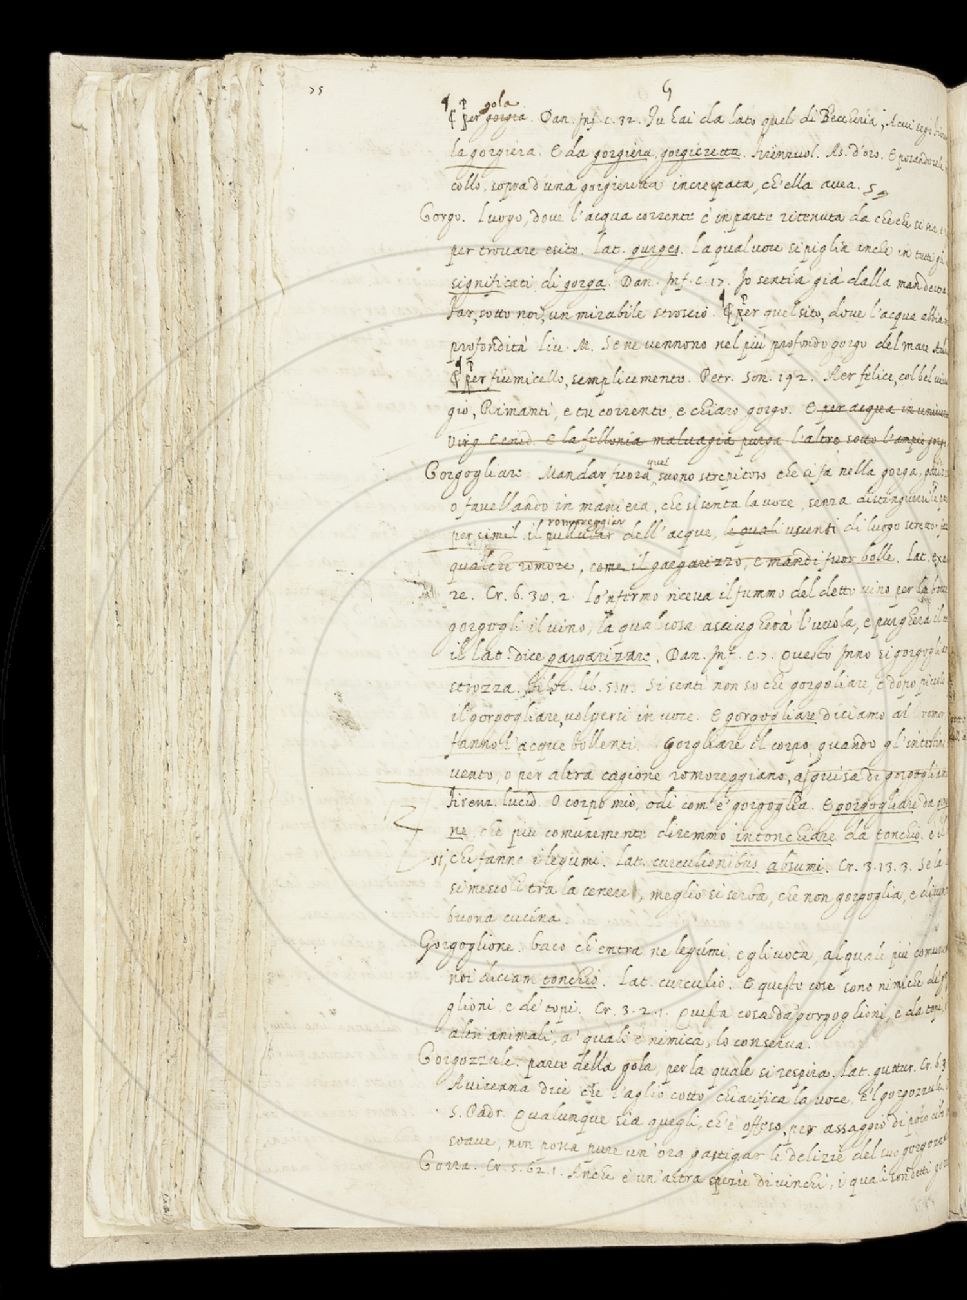 75
G
gola
¶ per gorgia. Dan. Inf. c. 32. Tu hai da lato quel di Beccheria, A cui segò
la gorgiera. E da gorgiera, gorgieretta. Firenzuol. As. d'oro. E
collo, sopra d'una gorgieretta increspata, ch'ella avea.
Gorgo. Luogo, dove l'acqua corrente è in parte ritenuta da che che si
per trovare esito. Lat. gurges. La qual voce si piglia anche in tutti gli
significati di gorga. Dan. Inf. c. 17. Io sentia già dalla man destra
Far, sotto noi, un mirabile stroscio. ¶ per quel sito, dove l'acqua abbia
profondità Liv. M. Se ne vennono nel più profondo gorgo del mare
¶ per fiumicello, semplicemente. Petr. Son. 192. Aer felice, col bel
gio, Rimanti, e tu corrente, e chiaro gorgo. E per acqua in
Virg. Eneid. E la fellonia malvagia purga l'altre sotto l'ampio gorgo
Gorgogliare. Mandar fuora quel suono strepitoso che si fa nella gorga,
o favellando in maniera, che si senta la voce, senza distinguersi
romoreggiar
per simil. il pullular dell'acque, le quali uscenti di luogo stretto
qualche romore, come il gargarizzo, e mandi fuor bolle. Lat.
re. Cr. 6. 30. 2. Lo'nfermo riceva il fummo del detto vino per la bocca
gorgogli il vino, la qual cosa asciugherà l'uvola, e purgherà il
il Lat. dice gargarizare. Dan. Inf. c. 7. Questo Inno si gorgoglian
strozza. Filoc. lib. 5. Si sentì non so che gorgoliare, e dopo piccolo
il gorgogliare, volgersi in voce. E gorgogliare diciamo al romor
fanno l'acque bollenti. Gorgliare il corpo, quando gl'intestini
vento, o per altra cagione romoreggiano, a guisa di gorgogliare
Firenz. Lucid. O corpo mio, odi com'e' gorgoglia. E gorgogliare da
ne, che più comunemente diremmo intonchiare da tonchio. e il
si, che fanno i legumi. Lat. curculionibus absumi. Cr. 3. 13. 3. Se la
si mescoli tra la cenere, meglio si serba, che non gorgoglia, e
buona cucina.
Gorgoglione. baco ch'entra ne legúmi, e gli vota, al quale più comune
noi diciam tonchio. Lat. curculio. E queste cose sono nimiche de'
glioni e de' topi. Cr. 3. 2. 1. Questa cosa da' gorgoglioni, e da topi,
altri animali, a' quali è nimica, lo conserva.
Gorgozzule. parte della gola, per la quale si respira. Lat. guttur. Cr. 6. 3
Avicenna dice che l'aglio cotto chiarifica la voce, E'l gorgozzule
S. Padr. Qualunque sia quegli, ch'è offeso, per assaggio di poco cibo
soave, non possa pure un'ora gastigar le delizie del suo gorgozzule
Gorra. Cr. 5. 62. 1. Anche è un'altra spezie di vinchi, i quali son detti